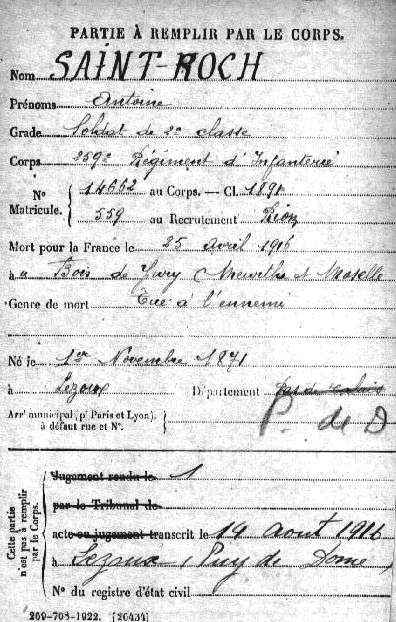 PARTIE À REMPLIR PAR LE CORPS.
Nom SAINT-ROCH
Prénoms Antoine
Grade Soldat de 2e classe
Corps 259e Régiment d'Infanterie
N° Matricule. { 14662 au Corps. — Cl. 1891
559 au Recrutement Riom
Mort pour la France le 25 avril 1916
à Bois de et Moselle
Genre de mort Tué à l'ennemi
Né le 1er Novembre 1871
à Lezoux Département Pas de Calais
P. de D
Arrt municipal (pr Paris et Lyon), à défaut rue et N°. {
Cette partie n'est pas à remplir par le Corps.
Jugement rendu le 1
par le Tribunal de
acte ou jugement transcrit le 19 août 1916
à Lezoux (Puy de Dome)
N° du registre d'état civil
269-708-1922. [26434]